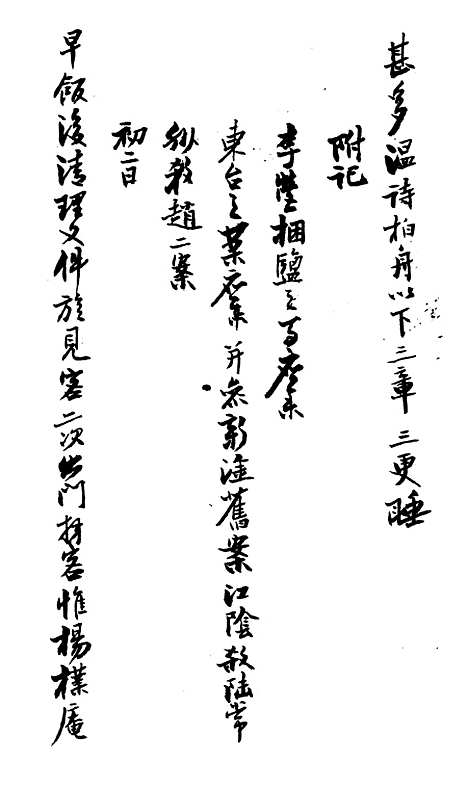 甚多溫詩柏舟以下三章三更睡
附記
李瑩捆鹽之事應案
東台之葉應案并無新淦舊案江陰殺陸常
殺趙二案
初二日
早飯後清理文件旋見客二次出門拜客惟楊樸庵